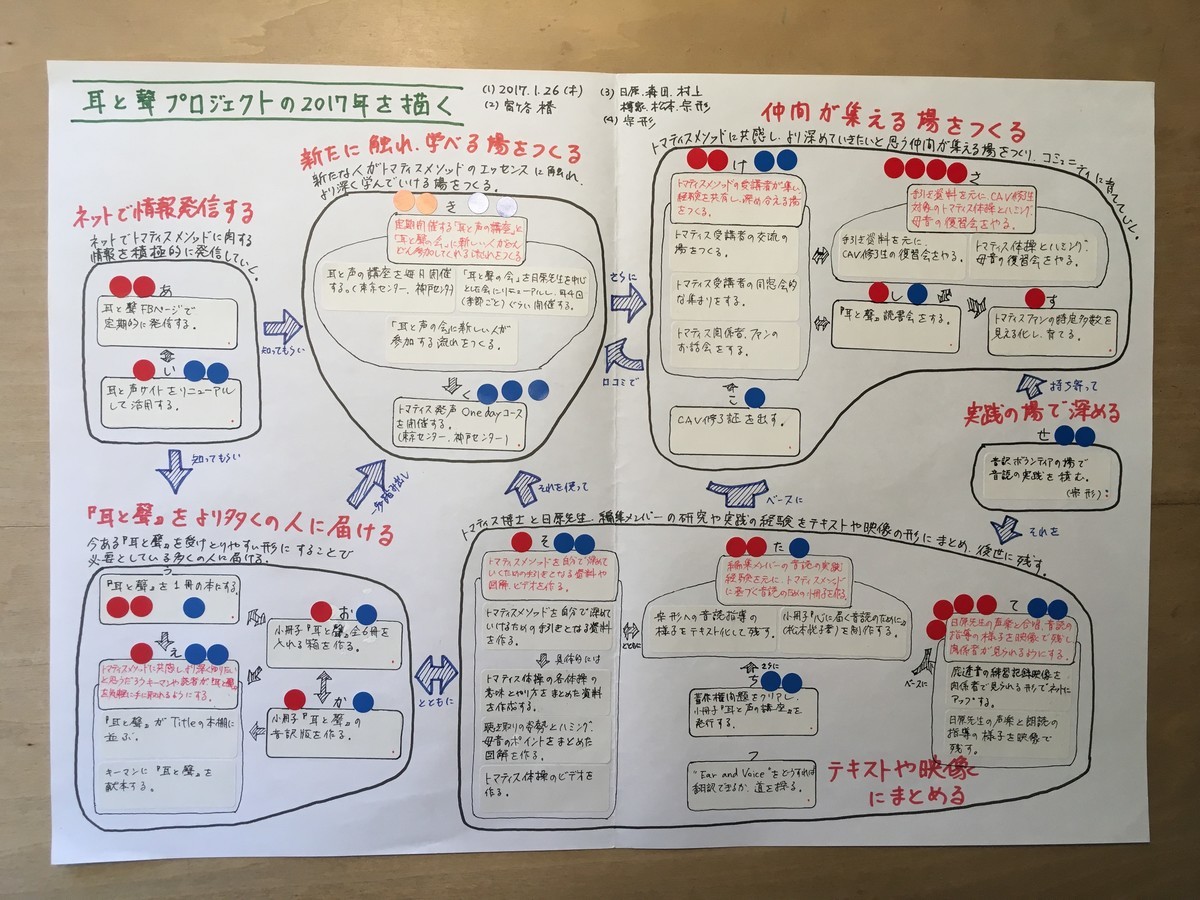 耳と聲プロジェクトの2017年を描く
(1) 2017.1.26(木)
(3) 日原、森田、村上
松本、宗形
(4) 宗形
ネットで情報発信する
ネットでトマティスメソッドに関する
情報を積極的に発信していく。
あ
耳と聲FBページで
定期的に発信する。
い
耳と声サイトをリニューアル
して活用する。
知ってもらい
知ってもらい
新たに触れ、学べる場をつくる
新たな人がトマティスメソッドのエッセンスに触れ、
より深く学んでいける場をつくる。
き
定期開催する「耳と声の講座」と
「耳と聲の会」に新しい人がどん
どん参加してくれる流れをつくる
耳と声の講座を毎月開催
する。(東京センター、神戸センター)
「耳と聲の会」を日原先生を中心
とした会にリニューアルし、年4回
(季節ごと)ぐらい開催する。
「耳と声の会」に新しい人が
参加する流れをつくる。
く
トマティス発声 One dayコース
を開催する。
(東京センター、神戸センター)
さらに
口コミで
一歩踏み出し
それを使って
仲間が集える場をつくる
トマティスメソッドに共感し、より深めていきたいと思う仲間が集える場をつくり、コミュニティに育てていく。
け
トマティスメソッドの受講者が集い、
経験を共有し、深め合える場
をつくる。
トマティス受講者の交流の
場をつくる。
トマティス受講者の同窓会的
な集まりをする。
トマティス関係者、ファンの
お話会をする。
こ
CAV修了証を出す。
さ
手引き資料を元に、CAV修了生
対象のトマティス体操とハミング、
母音の復習会をやる。
手引き資料を元に、
CAV修了生の復習会をやる。
トマティス体操とハミング、
母音の復習会をやる。
し
『耳と聲』読書会をする。
す
トマティスファンの特定多数を
見える化し、育てる。
持ち寄って
実践の場で深める
せ
音訳ボランティアの場で
音読の実践を積む。
(宗形)
それを
ベースに
『耳と聲』をより多くの人に届ける
今ある『耳と聲』を受けとりやすい形にすることで
必要としている多くの人に届ける。
う
『耳と聲』を1冊の本にする。
え
トマティスメソッドに共感し、より深く知りたい
と思うだろうキーマンや読者が『耳と聲』
を気軽に手に取れるようにする。
『耳と聲』がTitleの本棚に
並ぶ。
キーマンに『耳と聲』を
献本する。
お
小冊子『耳と聲』全6冊を
入れる箱を作る。
か
小冊子『耳と聲』の
音訳版を作る。
とともに
トマティス博士と日原先生、編集メンバーの研究や実践の経験をテキストや映像の形にまとめ、後世に残す。
そ
トマティスメソッドを自分で深めて
いくための手引きとなる資料や
図解、ビデオを作る。
トマティスメソッドを自分で深めて
いけるための手引きとなる資料
を作る。
具体的には
トマティス体操の各体操の
意味とやり方をまとめた資料
を作成する。
聴き取りの姿勢とハミング、
母音のポイントをまとめた
図解を作る。
トマティス体操のビデオを
作る。
とともに
た
編集メンバーの音読の実践
経験を元に、トマティスメソッド
に基づく音読のための小冊子を作る。
宗形への音読指導の
様子をテキスト化して残す。
小冊子『心に届く音読のために』
を制作する。
さらに
ち
著作権問題をクリアし、
小冊子『耳と声の講座』を
発行する。
つ
"Ear and Voice"をどうすれば
翻訳できるか、道を探る。
ベースに
て
日原先生の声楽と合唱、音読の
指導の様子を映像で残し、
関係者が見られるようにする。
の練習記録映像を
関係者で見られる形でネットに
アップする。
日原先生の声楽と朗読の
指導の様子を映像で
残す。
テキストや映像
にまとめる